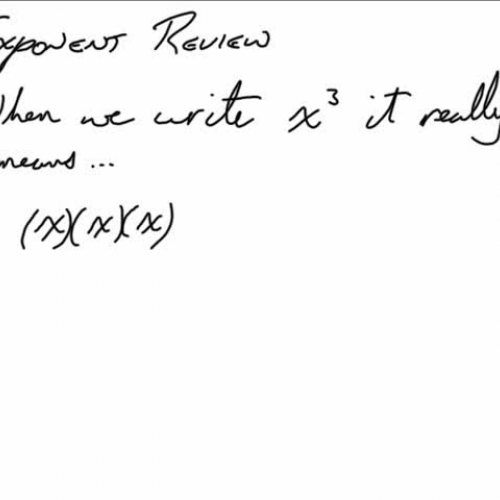 Exponent Review
When we write x³ it really
means ...
(x)(x)(x)